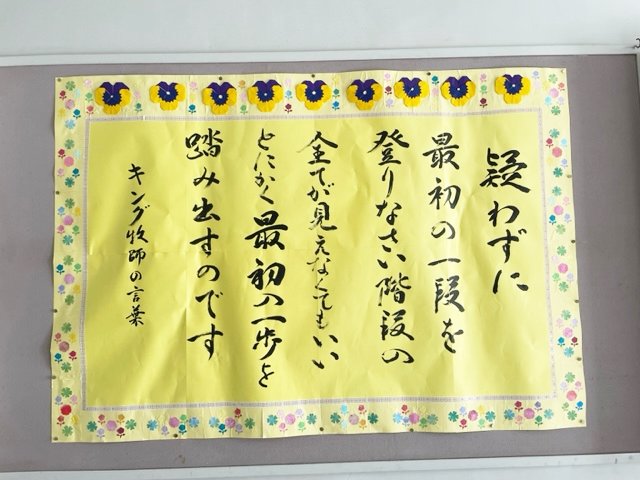 疑わずに
最初の一段を
登りなさい階段の
全てが見えなくてもいい
とにかく最初の一歩を
踏み出すのです
キング牧師の言葉